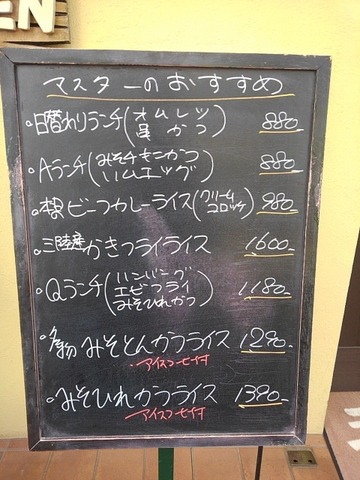 EN
マスターのおすすめ
・日替りランチ(オムレツ 880-
かつ)
・Aランチ(みそチキンかつ 880-
ハムエッグ)
ビーフカレーライス(クリーム 980-
コロッケ)
・三陸産かきフライライス 1,600-
・Qランチ(ハンバーグ 1,180-
エビフライ
みそひれかつ)
・名物みそとんかつライス 1,290-
アイスコーヒー付
・みそひれかつライス 1,390-
アイスコーヒー付